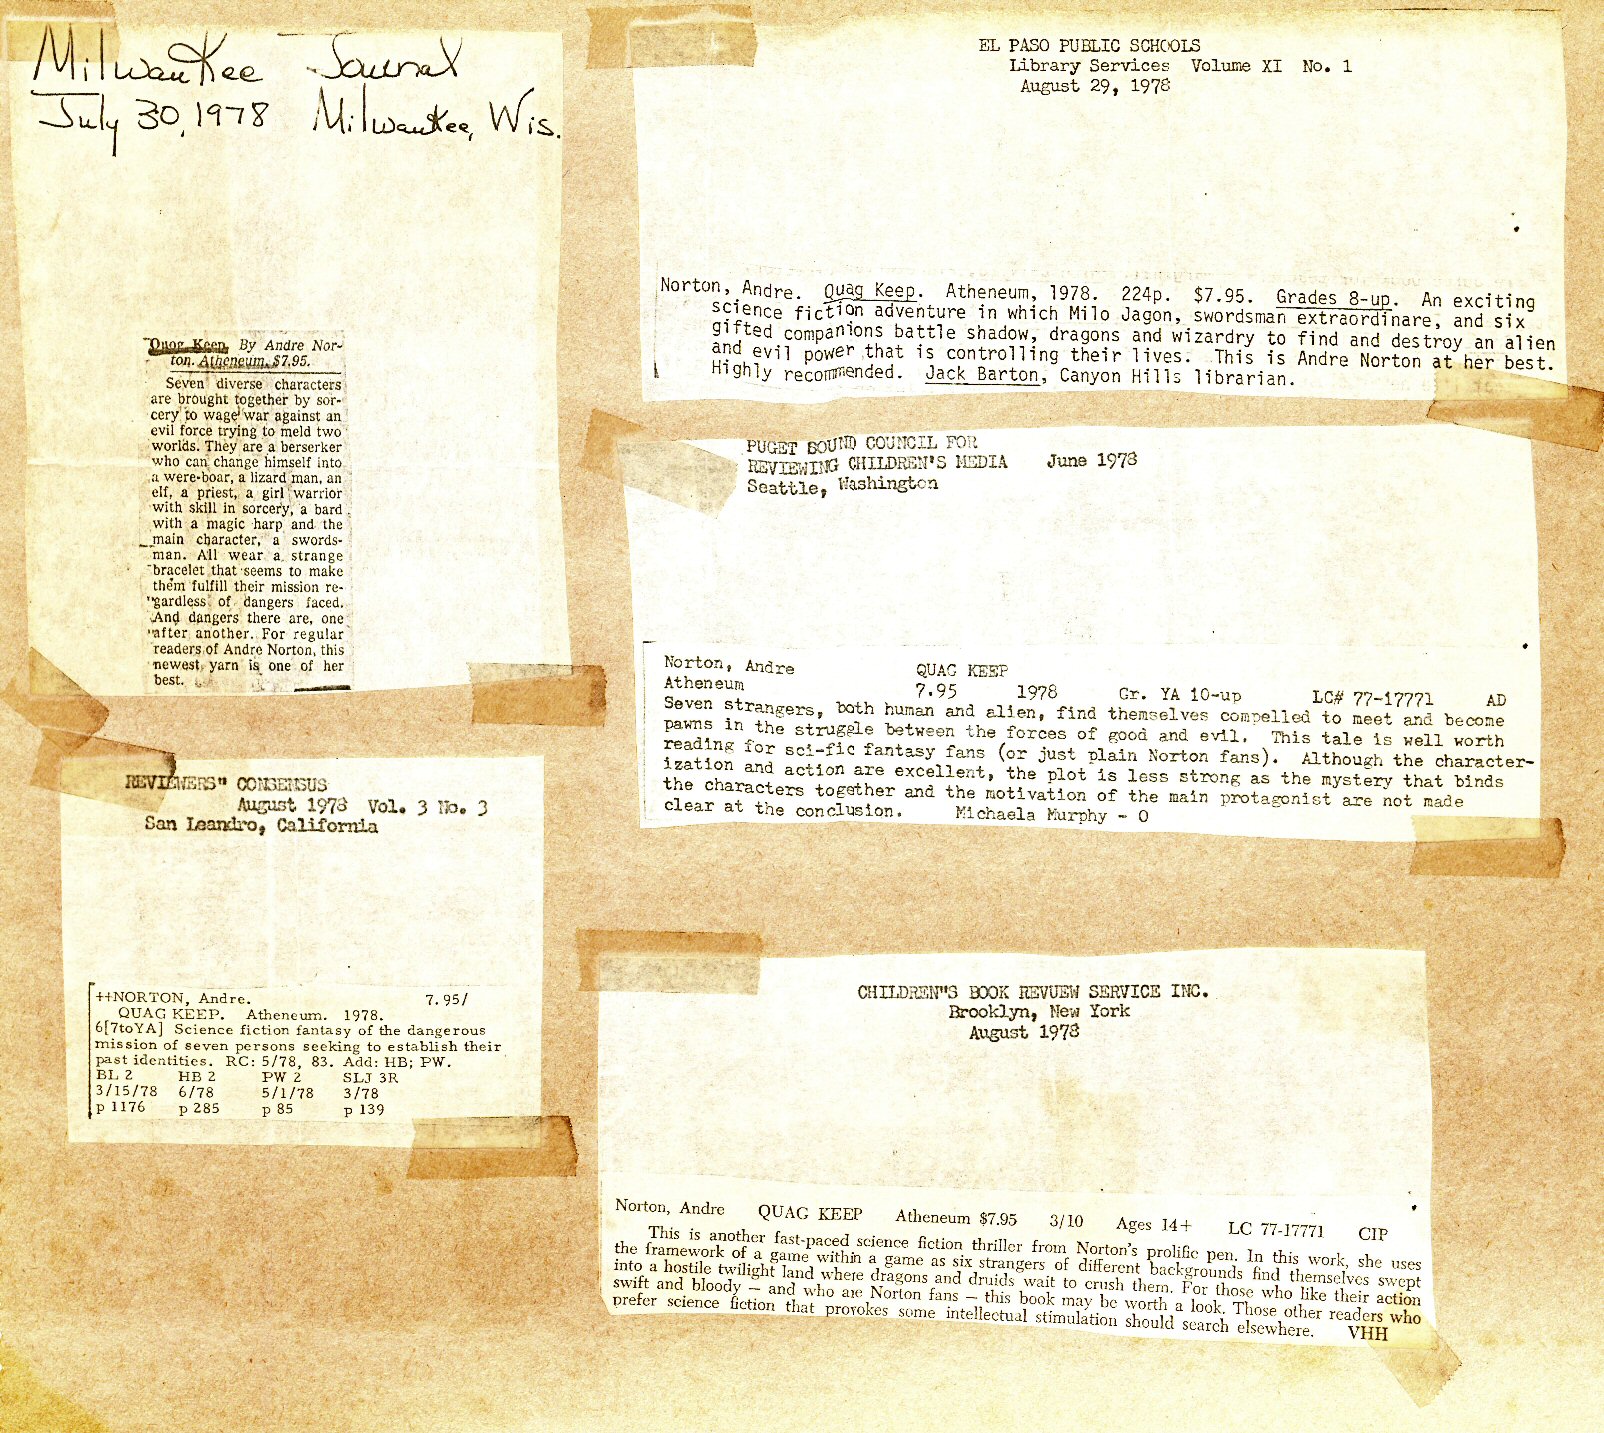 Milwaukee Journal
July 30, 1978 Milwaukee, Wis.
Quag Keep. By Andre Nor-
ton. Atheneum. $7.95.
Seven diverse characters
are brought together by sor-
cery to wage war against an
evil force trying to meld two
worlds. They are a berserker
who can change himself into
a were-boar, a lizard man, an
elf, a priest, a girl warrior
with skill in sorcery, a bard
with a magic harp and the
main character, a swords-
man. All wear a strange
bracelet that seems to make
them fulfill their mission re-
gardless of dangers faced.
And dangers there are, one
after another. For regular
readers of Andre Norton, this
newest yarn is one of her
best.
REVIEWERS" CONSENSUS
August 1978 Vol. 3 No. 3
San Leandro, California
++NORTON, Andre. 7.95/
QUAG KEEP. Atheneum. 1978.
6[7toYA] Science fiction fantasy of the dangerous
mission of seven persons seeking to establish their
past identities. RC: 5/78, 83. Add: HB; PW.
BL 2 HB 2 PW 2 SLJ 3R
3/15/78 6/78 5/1/78 3/78
p 1176 p 285 p 85 p 139
EL PASO PUBLIC SCHOOLS
Library Services Volume XI No. 1
August 29, 1978
Norton, Andre. Quag Keep. Atheneum, 1978. 224p. $7.95. Grades 8-up. An exciting
science fiction adventure in which Milo Jagon, swordsman extraordinare, and six
gifted companions battle shadow, dragons and wizardry to find and destroy an alien
and evil power that is controlling their lives. This is Andre Norton at her best.
Highly recommended. Jack Barton, Canyon Hills librarian.
PUGET SOUND COUNCIL FOR
REVIEWING CHILDREN'S MEDIA June 1978
Seattle, Washington
Norton, Andre QUAG KEEP
Atheneum 7.95 1978 Gr. YA 10-up LC# 77-17771 AD
Seven strangers, both human and alien, find themselves compelled to meet and become
pawns in the struggle between the forces of good and evil. This tale is well worth
reading for sci-fic fantasy fans (or just plain Norton fans). Although the character-
ization and action are excellent, the plot is less strong as the mystery that binds
the characters together and the motivation of the main protagonist are not made
clear at the conclusion. Michaela Murphy - O
CHILDREN"S BOOK REVUEW SERVICE INC.
Brooklyn, New York
August 1978
Norton, Andre QUAG KEEP Atheneum $7.95 3/10 Ages 14+ LC 77-17771 CIP
This is another fast-paced science fiction thriller from Norton's prolific pen. In this work, she uses
the framework of a game within a game as six strangers of different backgrounds find themselves swept
into a hostile twilight land where dragons and druids wait to crush them. For those who like their action
swift and bloody — and who are Norton fans — this book may be worth a look. Those other readers who
prefer science fiction that provokes some intellectual stimulation should search elsewhere. VHH